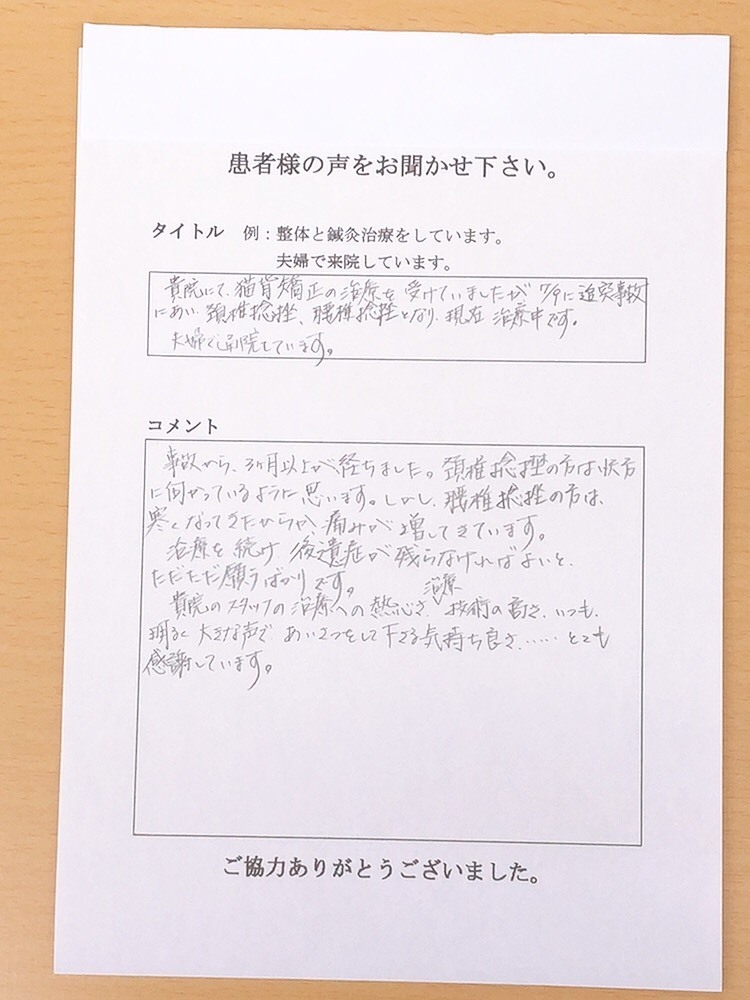 患者様の声をお聞かせ下さい。
タイトル 例：整体と鍼灸治療をしています。
夫婦で来院しています。
貴院にて、猫背矯正の治療を受けていましたが 7/9に追突事故
にあい、頚椎捻挫、腰椎捻挫となり、現在 治療中です。
夫婦で通院しています。
コメント
事故から、3ヶ月以上が経ちました。頚椎捻挫の方は快方
に向かっているように思います。しかし、腰椎捻挫の方は、
寒くなってきたからか、痛みが増してきています。
治療を続け 後遺症が残らなければよいと、
ただただ願うばかりです。
治療
貴院のスタッフの治療への熱心さ、技術の高さ、いつも、
明るく大きな声で、あいさつをして下さる気持ち良さ……とても
感謝しています。
ご協力ありがとうございました。